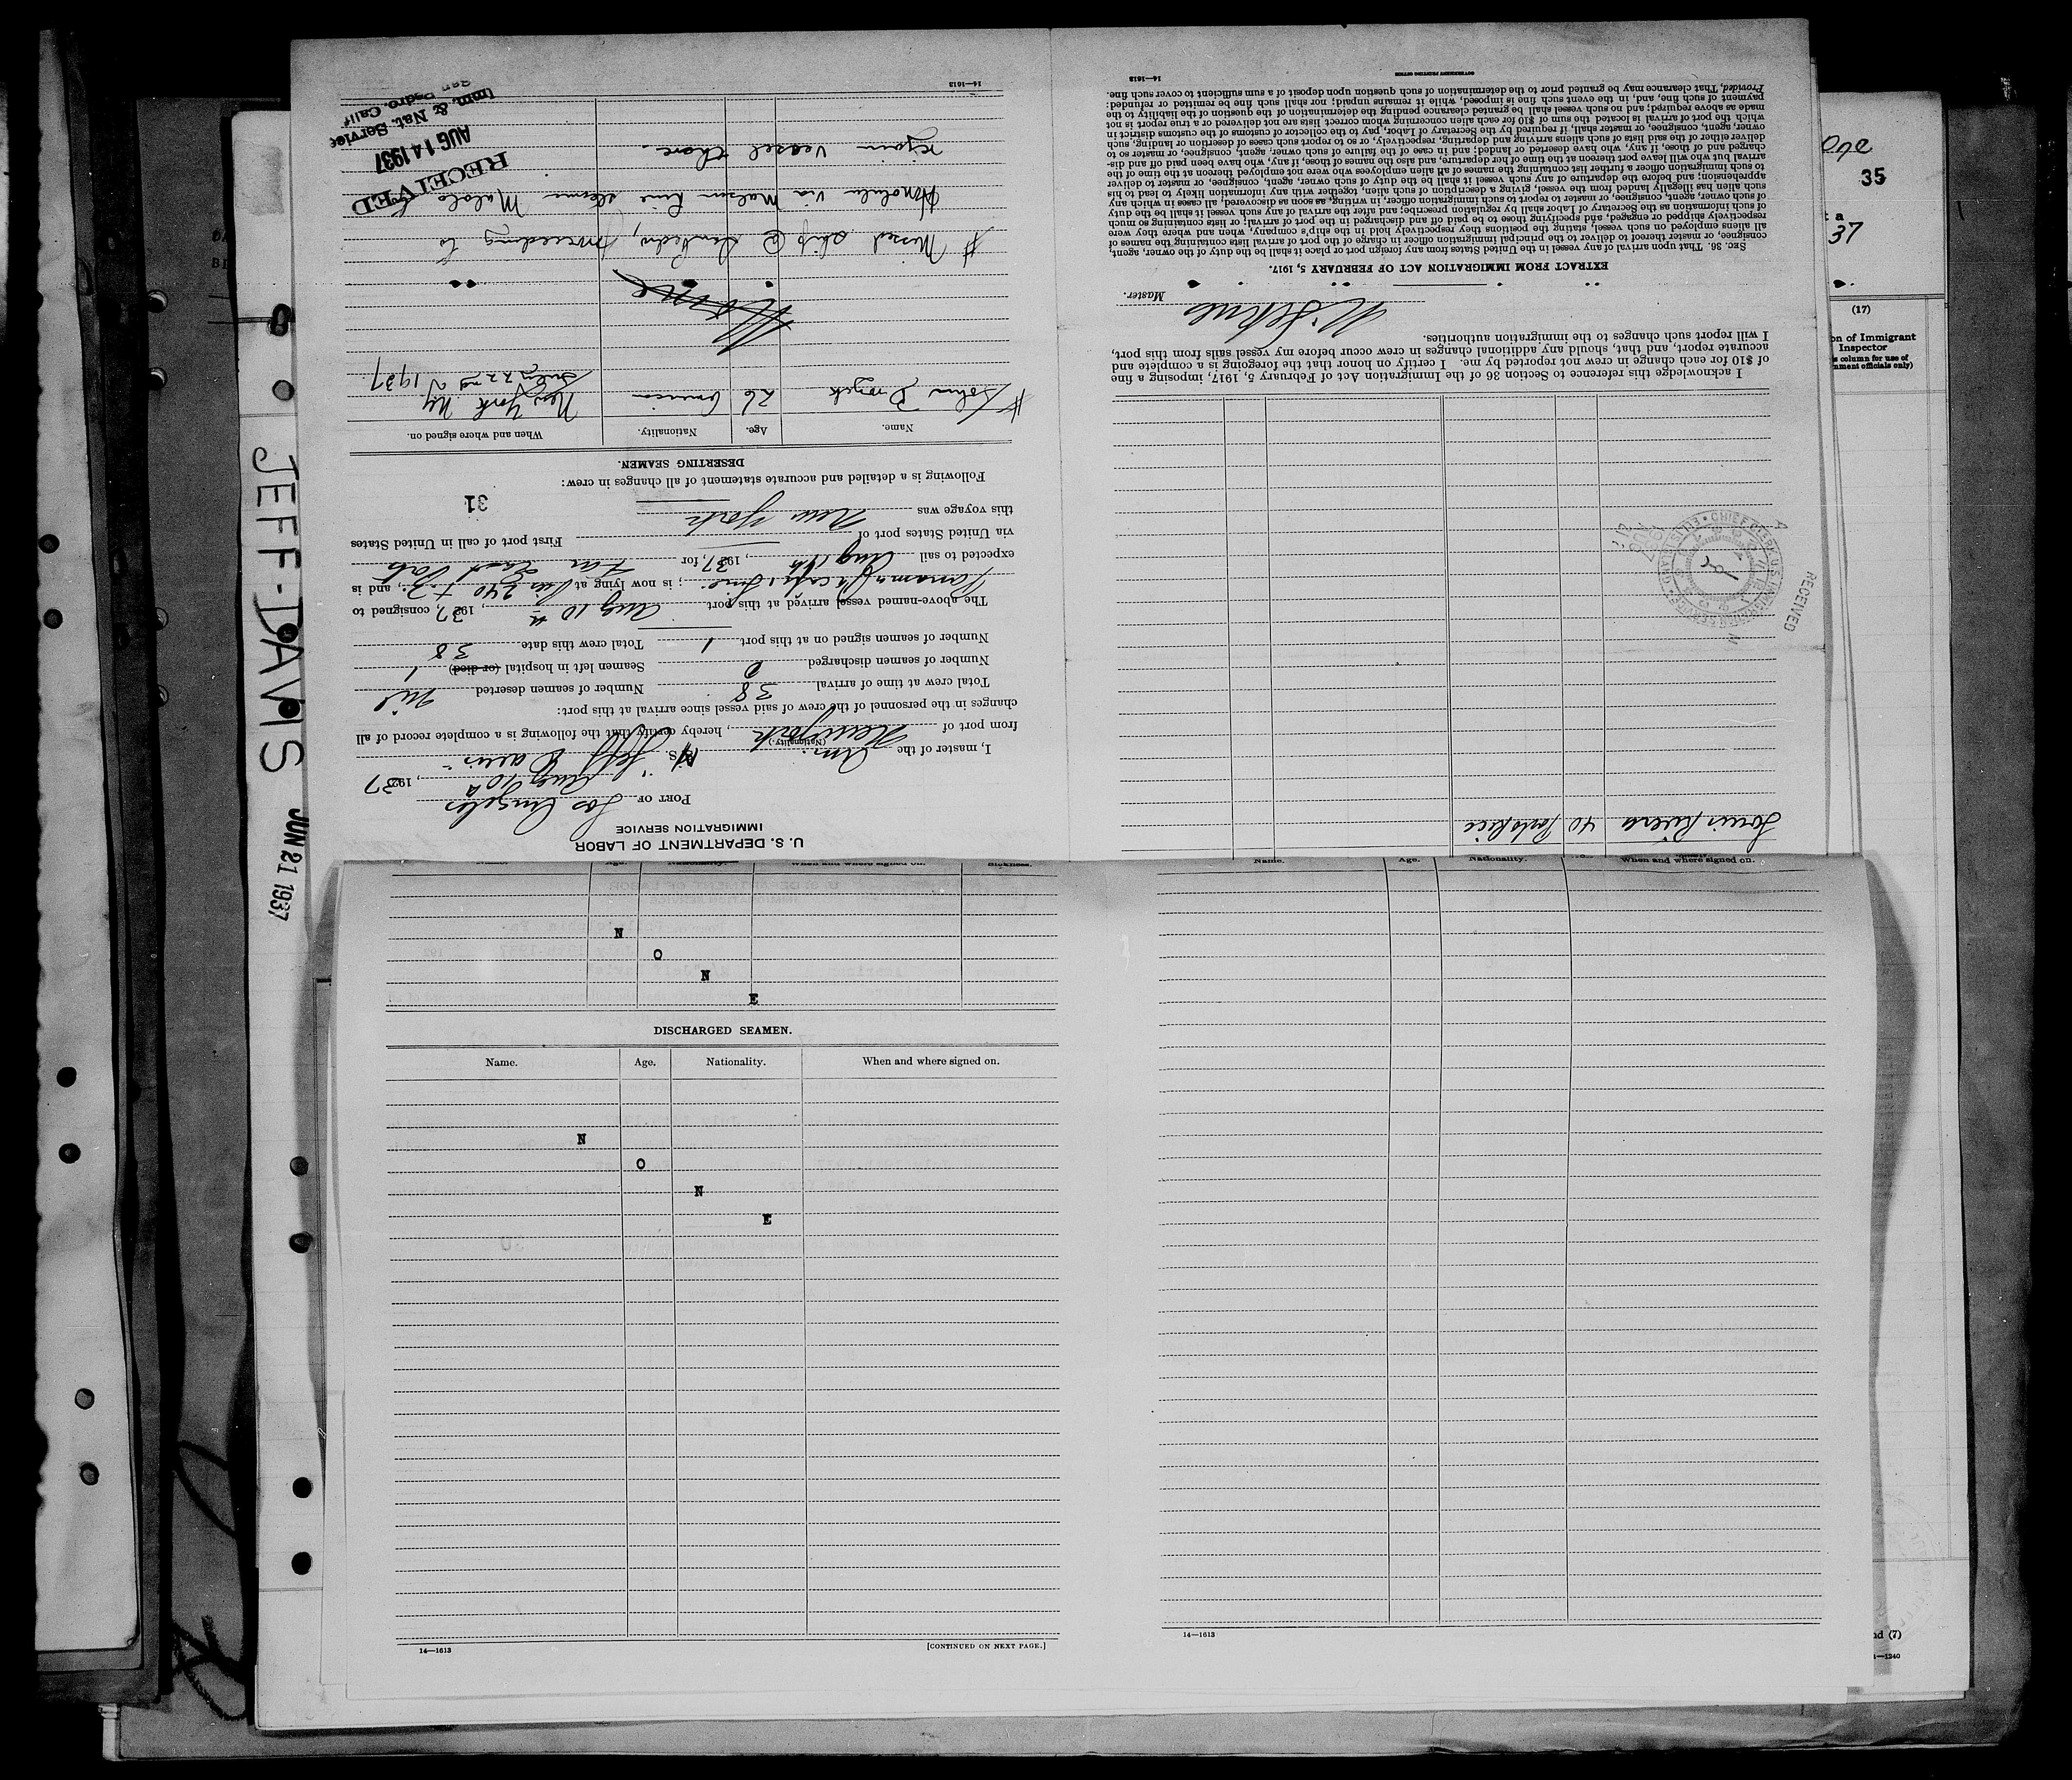 U. S. DEPARTMENT OF LABOR
IMMIGRATION SERVICE
PORT OF Los Angeles
Aug 10th, 1937
I, master of the Am. (Nationality.) S/S "Jeff Davis"
from port of New York, hereby certify that the following is a complete record of all
changes in the personnel of the crew of said vessel since arrival at this port:
Total crew at time of arrival 38 Number of seamen deserted nil
Number of seamen discharged 0 Seamen left in hospital (or died) 1
Number of seamen signed on at this port 1 Total crew this date 38
The above-named vessel arrived at this port Aug 10th, 1937, consigned to
Panama Pacific Line; is now lying at Pier 240 and is
expected to sail Aug, 1937, for Far East Ports
via United States port of First port of call in United States
this voyage was New York 31
Following is a detailed and accurate statement of all changes in crew:
DESERTING SEAMEN.
Name. Age. Nationality. When and where signed on.
# John 26 American New York NY
July 22nd 1937
None
# Missed ship @ San Pedro, proceeding to
Honolulu via Matson Line steamer Malolo
rejoin vessel there.
RECEIVED
AUG 14 1937
Imm. & Nat. Service
San Pedro, Calif
14—1613
When and where signed on.
Louis Rivera 40 Porto Rico
I acknowledge this reference to Section 36 of the Immigration Act of February 5, 1917, imposing a fine
of $10 for each change in crew not reported by me. I certify on honor that the foregoing is a complete and
accurate report, and that, should any additional changes in crew occur before my vessel sails from this port,
I will report such changes to the immigration authorities.
Master.
EXTRACT FROM IMMIGRATION ACT OF FEBRUARY 5, 1917.
SEC. 36. That upon arrival of any vessel in the United States from any foreign port or place it shall be the duty of the owner, agent,
consignee, or master thereof to deliver to the principal immigration officer in charge of the port of arrival lists containing the names of
all aliens employed on such vessel, stating the positions they respectively hold in the ship's company, when and where they were
respectively shipped or engaged, and specifying those to be paid off and discharged in the port of arrival or lists containing so much
of such information as the Secretary of Labor shall by regulation prescribe; and after the arrival of any such vessel it shall be the duty
of such owner, agent, consignee, or master to report to such immigration officer, in writing, as soon as discovered, all cases in which any
such alien has illegally landed from the vessel, giving a description of such alien, together with any information likely to lead to his
apprehension; and before the departure of any such vessel it shall be the duty of such owner, agent, consignee, or master to deliver
to such immigration officer a further list containing the names of all alien employees who were not employed thereon at the time of the
arrival but who will leave port thereon at the time of her departure, and also the names of those, if any, who have been paid off and dis-
charged and of those, if any, who have deserted or landed; and in case of the failure of such owner, agent, consignee, or master so to
deliver either of the said lists of such aliens arriving and departing, respectively, or so to report such cases of desertion or landing, such
owner, agent, consignee, or master, shall, if required by the Secretary of Labor, pay to the collector of customs of the customs district in
which the port of arrival is located the sum of $10 for each alien concerning whom correct lists are not delivered or a true report is not
made as above required; and no such vessel shall be granted clearance pending the determination of the question of the liability to the
payment of such fine, and, in the event such fine is imposed, while it remains unpaid; nor shall such fine be remitted or refunded:
Provided, That clearance may be granted prior to the determination of such question upon deposit of a sum sufficient to cover such fine.
14—1613
GOVERNMENT PRINTING OFFICE
RECEIVED
JEFF-DAVIS JUN 21 1937
Name. Age. Nationality. When and where signed on. Sickness.
N
O
N
E
DISCHARGED SEAMEN.
Name. Age. Nationality. When and where signed on.
N
O
N
E
14—1613 [CONTINUED ON NEXT PAGE.]
Name. Age. Nationality. When and where signed on.
14—1613
35
37
(17)
on of Immigrant
Inspector
s column for use of
nment officials only)
nd (7)
—1240